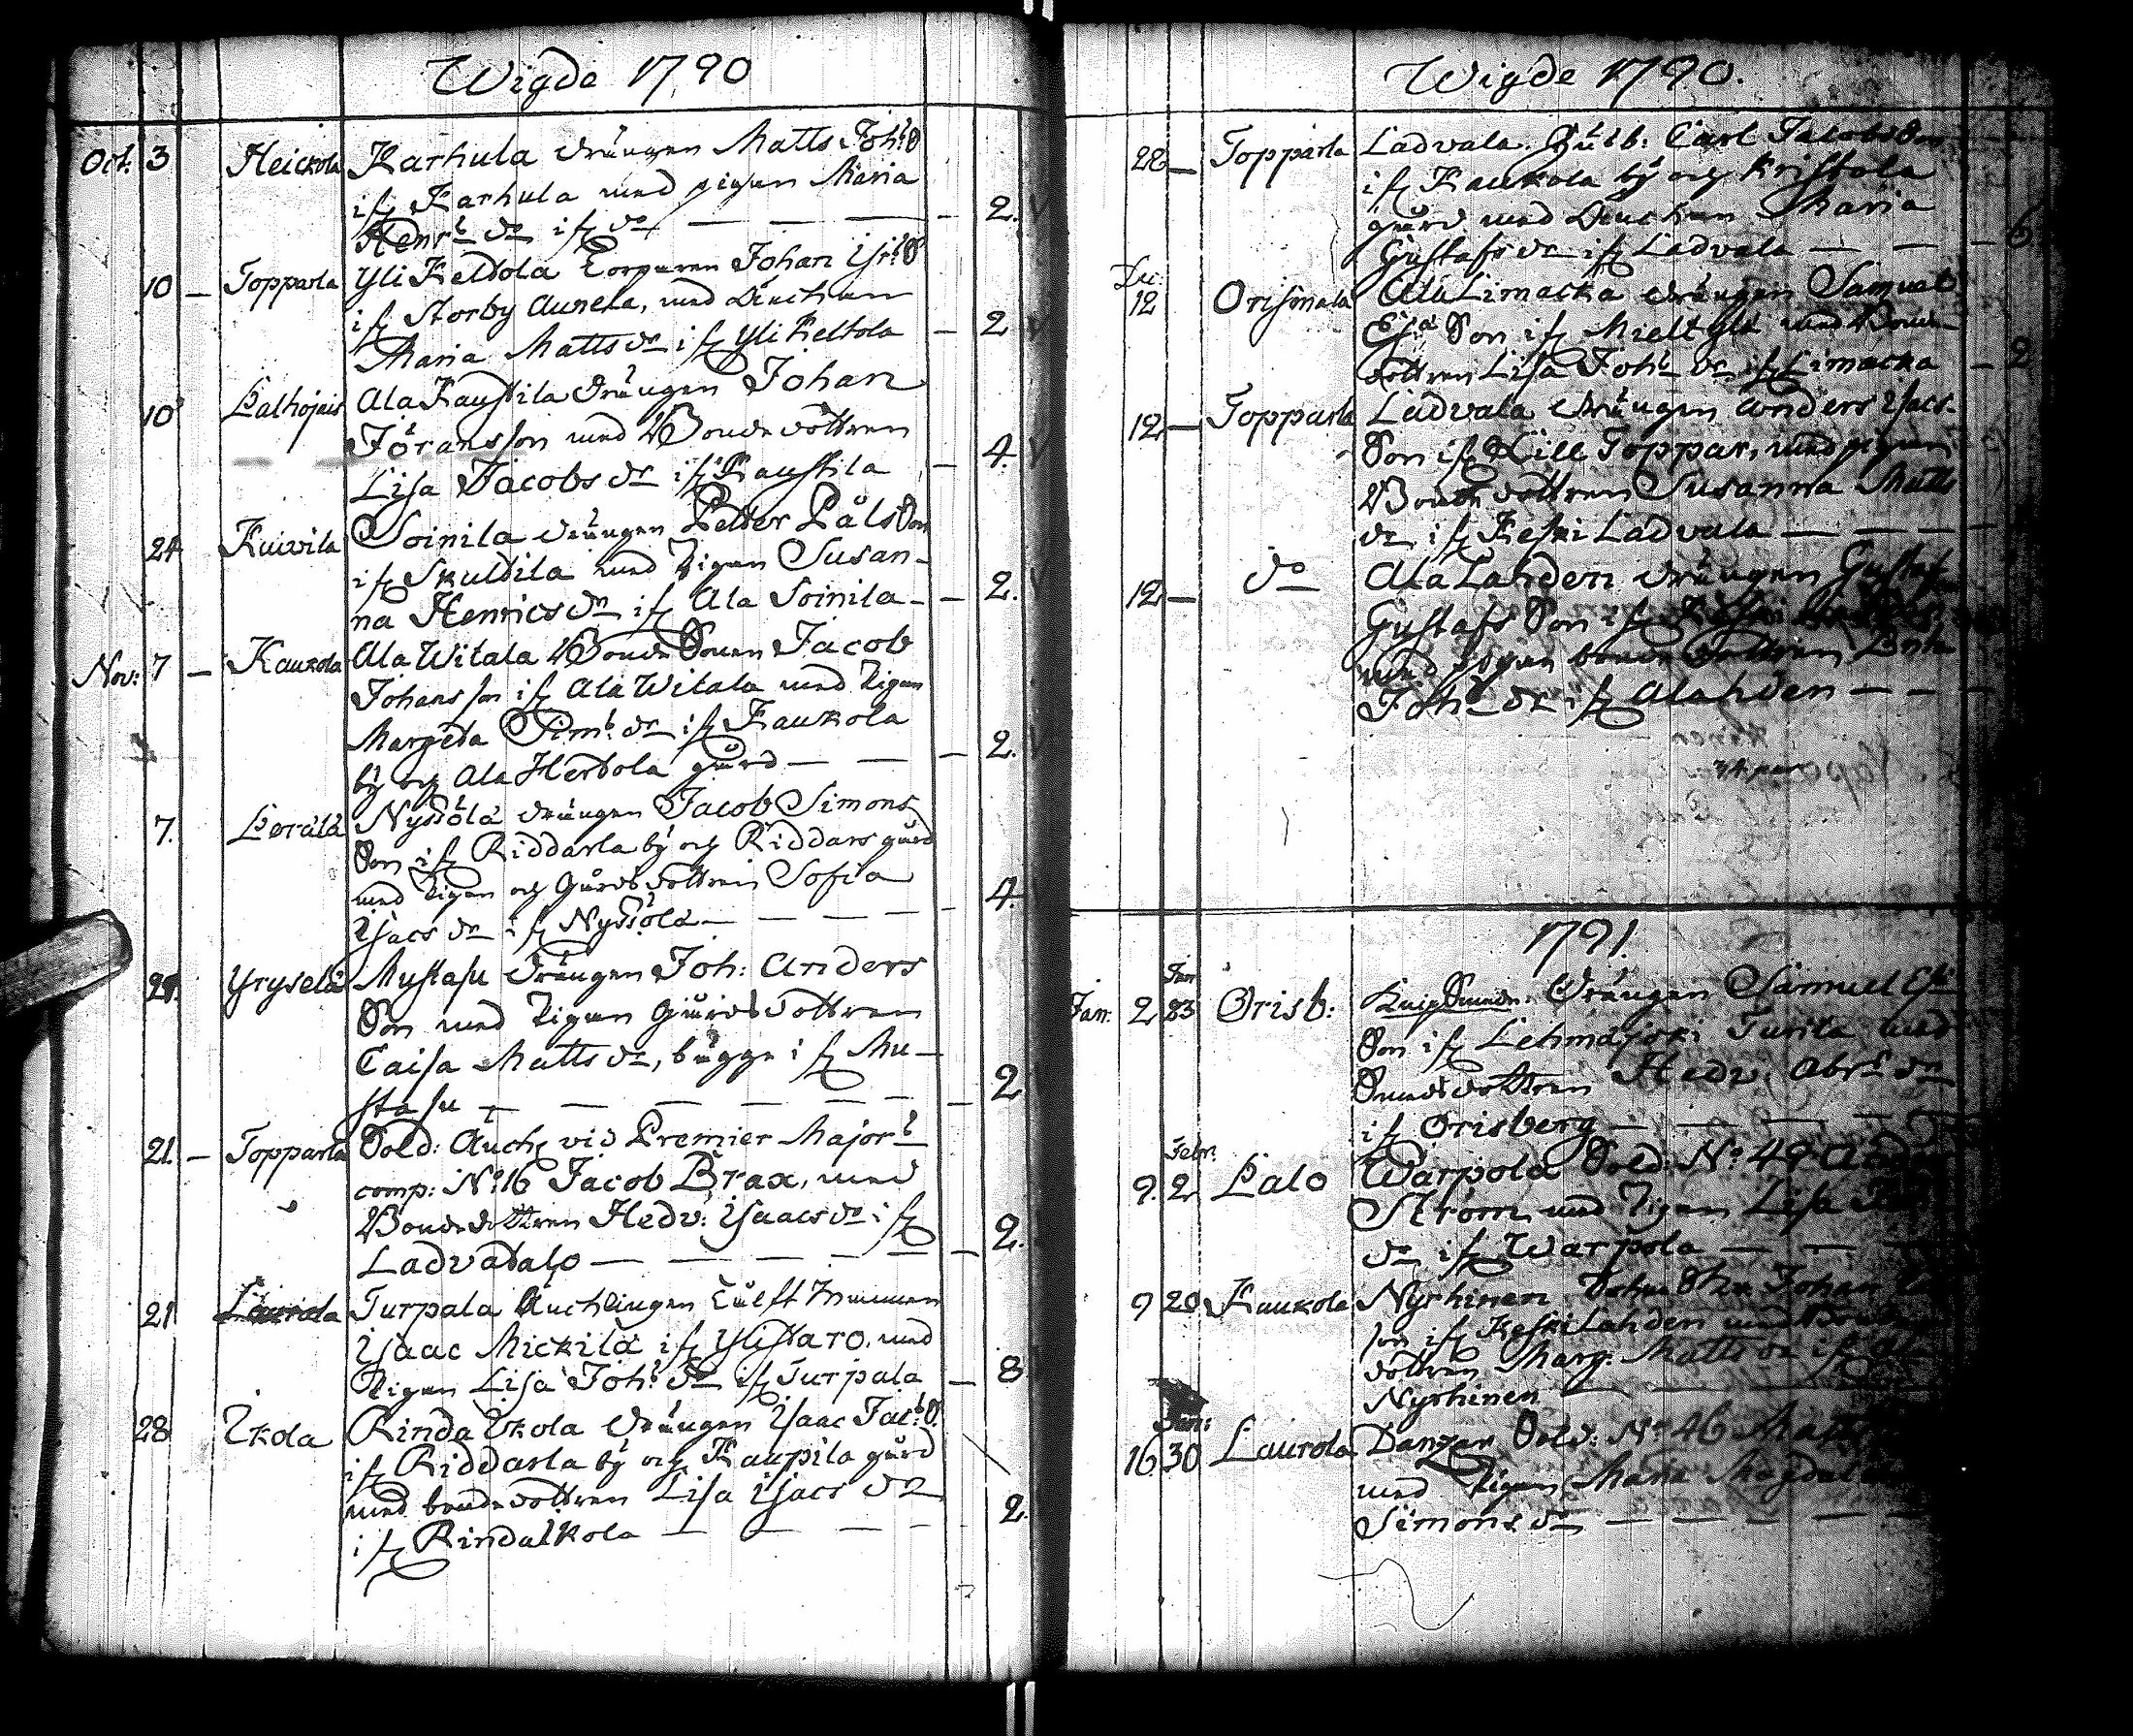 Wigde 1790
Oct: 3 Heickola Karhula drängen Matts Joh:s S
ifr Karhula med pigan Maria
Henr:s dr ifr do — — — 2.
10 — Topparla Yli Keltola Torparen Johan Isr:s S
ifr Storby Aunela, med Änckan
Maria Matts dr ifr Yli Keltola — 2
10 Palhojais Ala Kaustila drängen Johan
Jöransson med Bondedottren
Lisa Jacobs dr ifr Kaustila — 4.
24 Kuivila Soinila drängen Petter Påls Son
ifr Skuldila med Pigan Susan-
na Henrics dr ifr Ala Soinila — 2.
Nov: 7 — Kaukola Ala Witala Bonde Sonen Jacob
Johansson ifr Ala Witala med Pigan
Margeta Sim:s dr ifr Kaukola
by och Ala Hertola gård — — 2.
7. Perälä Nyssölä drängen Jacob Simons
Son ifr Riddarla by och Riddars gård
med Pigan och Gårdsdottren Sofia
Isacs dr ifr Nyssölä — — — 4.
21. Yryselä Mustasu drängen Joh: Anders
Son med Pigan Gårdsdottren
Caisa Matts dr, bägge ifr Mu-
stasu — — — — — 2
21. — Topparla Sold: Auch vid Premier Major:s
comp: No 16 Jacob Brax, med
Bondedottren Hedv: Isaacs dr ifr
Ladvatalo — — — — 2.
21 Turpala Änchlingen
Isaac Mickilä ifr Ylistaro, med
Pigan Lisa Joh:s dr ifr Turpala — 8
28 Ikola Rinda Ikola drängen Isaac Jac:s S.
ifr Riddarla by och Kaupila gård
med bondedottren Lisa Isacs dr
ifr Rindaikola — — — 2
Wigde 1790.
28 — Topparla Ladvala. Carl Jacobs Son
ifr Kaukola by och Kristola
gård med Änckan Maria
Gustafs dr ifr Ladvala — — 6
Dec:
12 Orismala Ala Limacka drängen Samuel
Esa Son ifr Mieltylä med Bonde-
dottren Lisa Joh:s dr ifr Limacka — 2
12 — Topparla Ladvala drängen Anders Isacs-
Son ifr Lill Toppar, med pigan
Bondedottren Susanna Matts
dr ifr Keski Ladvala — — —
12 — do Ala Lahden drängen Gustaf
Gustafs Son ifr Keski
med pigan bondedottren Brita
Joh:s dr ifr Alahden — — —
34 par
1791.
Jan
Jan: 2 23 Orisb: drängen Samuel
Son ifr Lehmäjoki Turila med
Smedsdottren Hedv: Abr:s dr
ifr Orisberg — — —
Febr:
9. 2 Palo Warpola Sold: No 49
Ström med Pigan Lisa
dr ifr Warpola — — —
9 20 Kaukola Nyrhinen Johan
son ifr Keski Lahden med
dottren Marg: Matts dr ifr
Nyrhinen —
Jan:
16 30 Laurola Danzar Sold: No 46 Matts
med Pigan Maria Magdalena
Simons dr — — — —